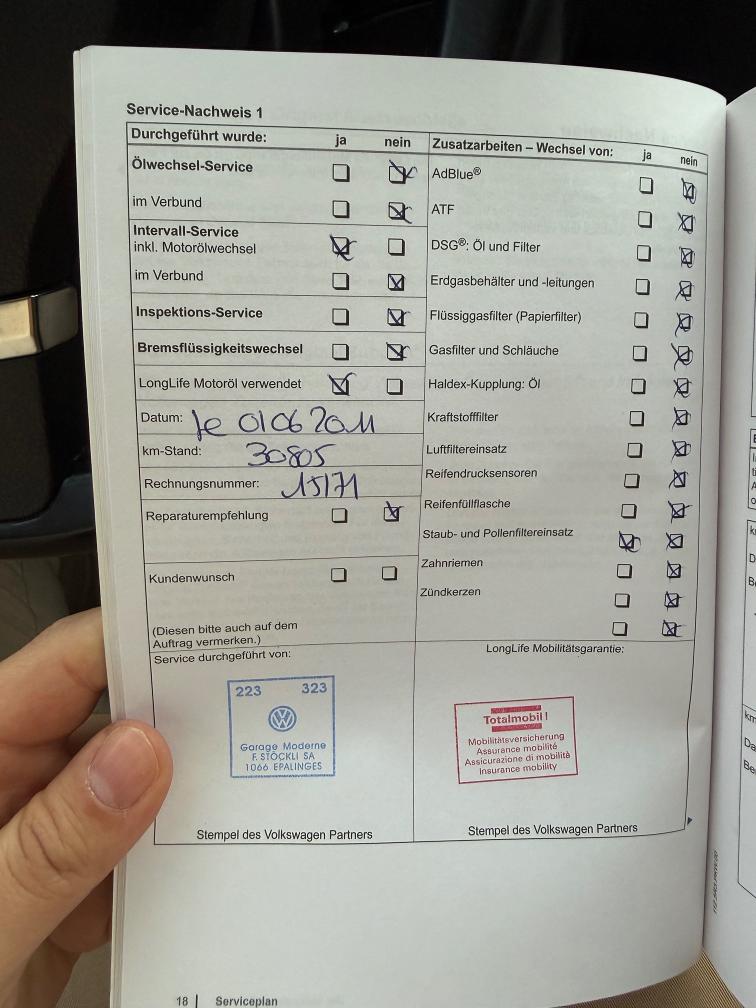 Service-Nachweis 1
Durchgeführt wurde: ja nein
Ölwechsel-Service
im Verbund
Intervall-Service
inkl. Motorölwechsel
im Verbund
Inspektions-Service
Bremsflüssigkeitswechsel
LongLife Motoröl verwendet
Datum: le 01 06 2011
km-Stand: 30805
Rechnungsnummer: 15171
Reparaturempfehlung
Kundenwunsch
(Diesen bitte auch auf dem
Auftrag vermerken.)
Zusatzarbeiten – Wechsel von: ja nein
AdBlue®
ATF
DSG®: Öl und Filter
Erdgasbehälter und -leitungen
Flüssiggasfilter (Papierfilter)
Gasfilter und Schläuche
Haldex-Kupplung: Öl
Kraftstofffilter
Luftfiltereinsatz
Reifendrucksensoren
Reifenfüllflasche
Staub- und Pollenfiltereinsatz
Zahnriemen
Zündkerzen
Service durchgeführt von:
223 323
Garage Moderne
F. STÖCKLI SA
1066 EPALINGES
Stempel des Volkswagen Partners
LongLife Mobilitätsgarantie:
Totalmobil!
Mobilitätsversicherung
Assurance mobilité
Assicurazione di mobilità
Insurance mobility
Stempel des Volkswagen Partners
18 | Serviceplan